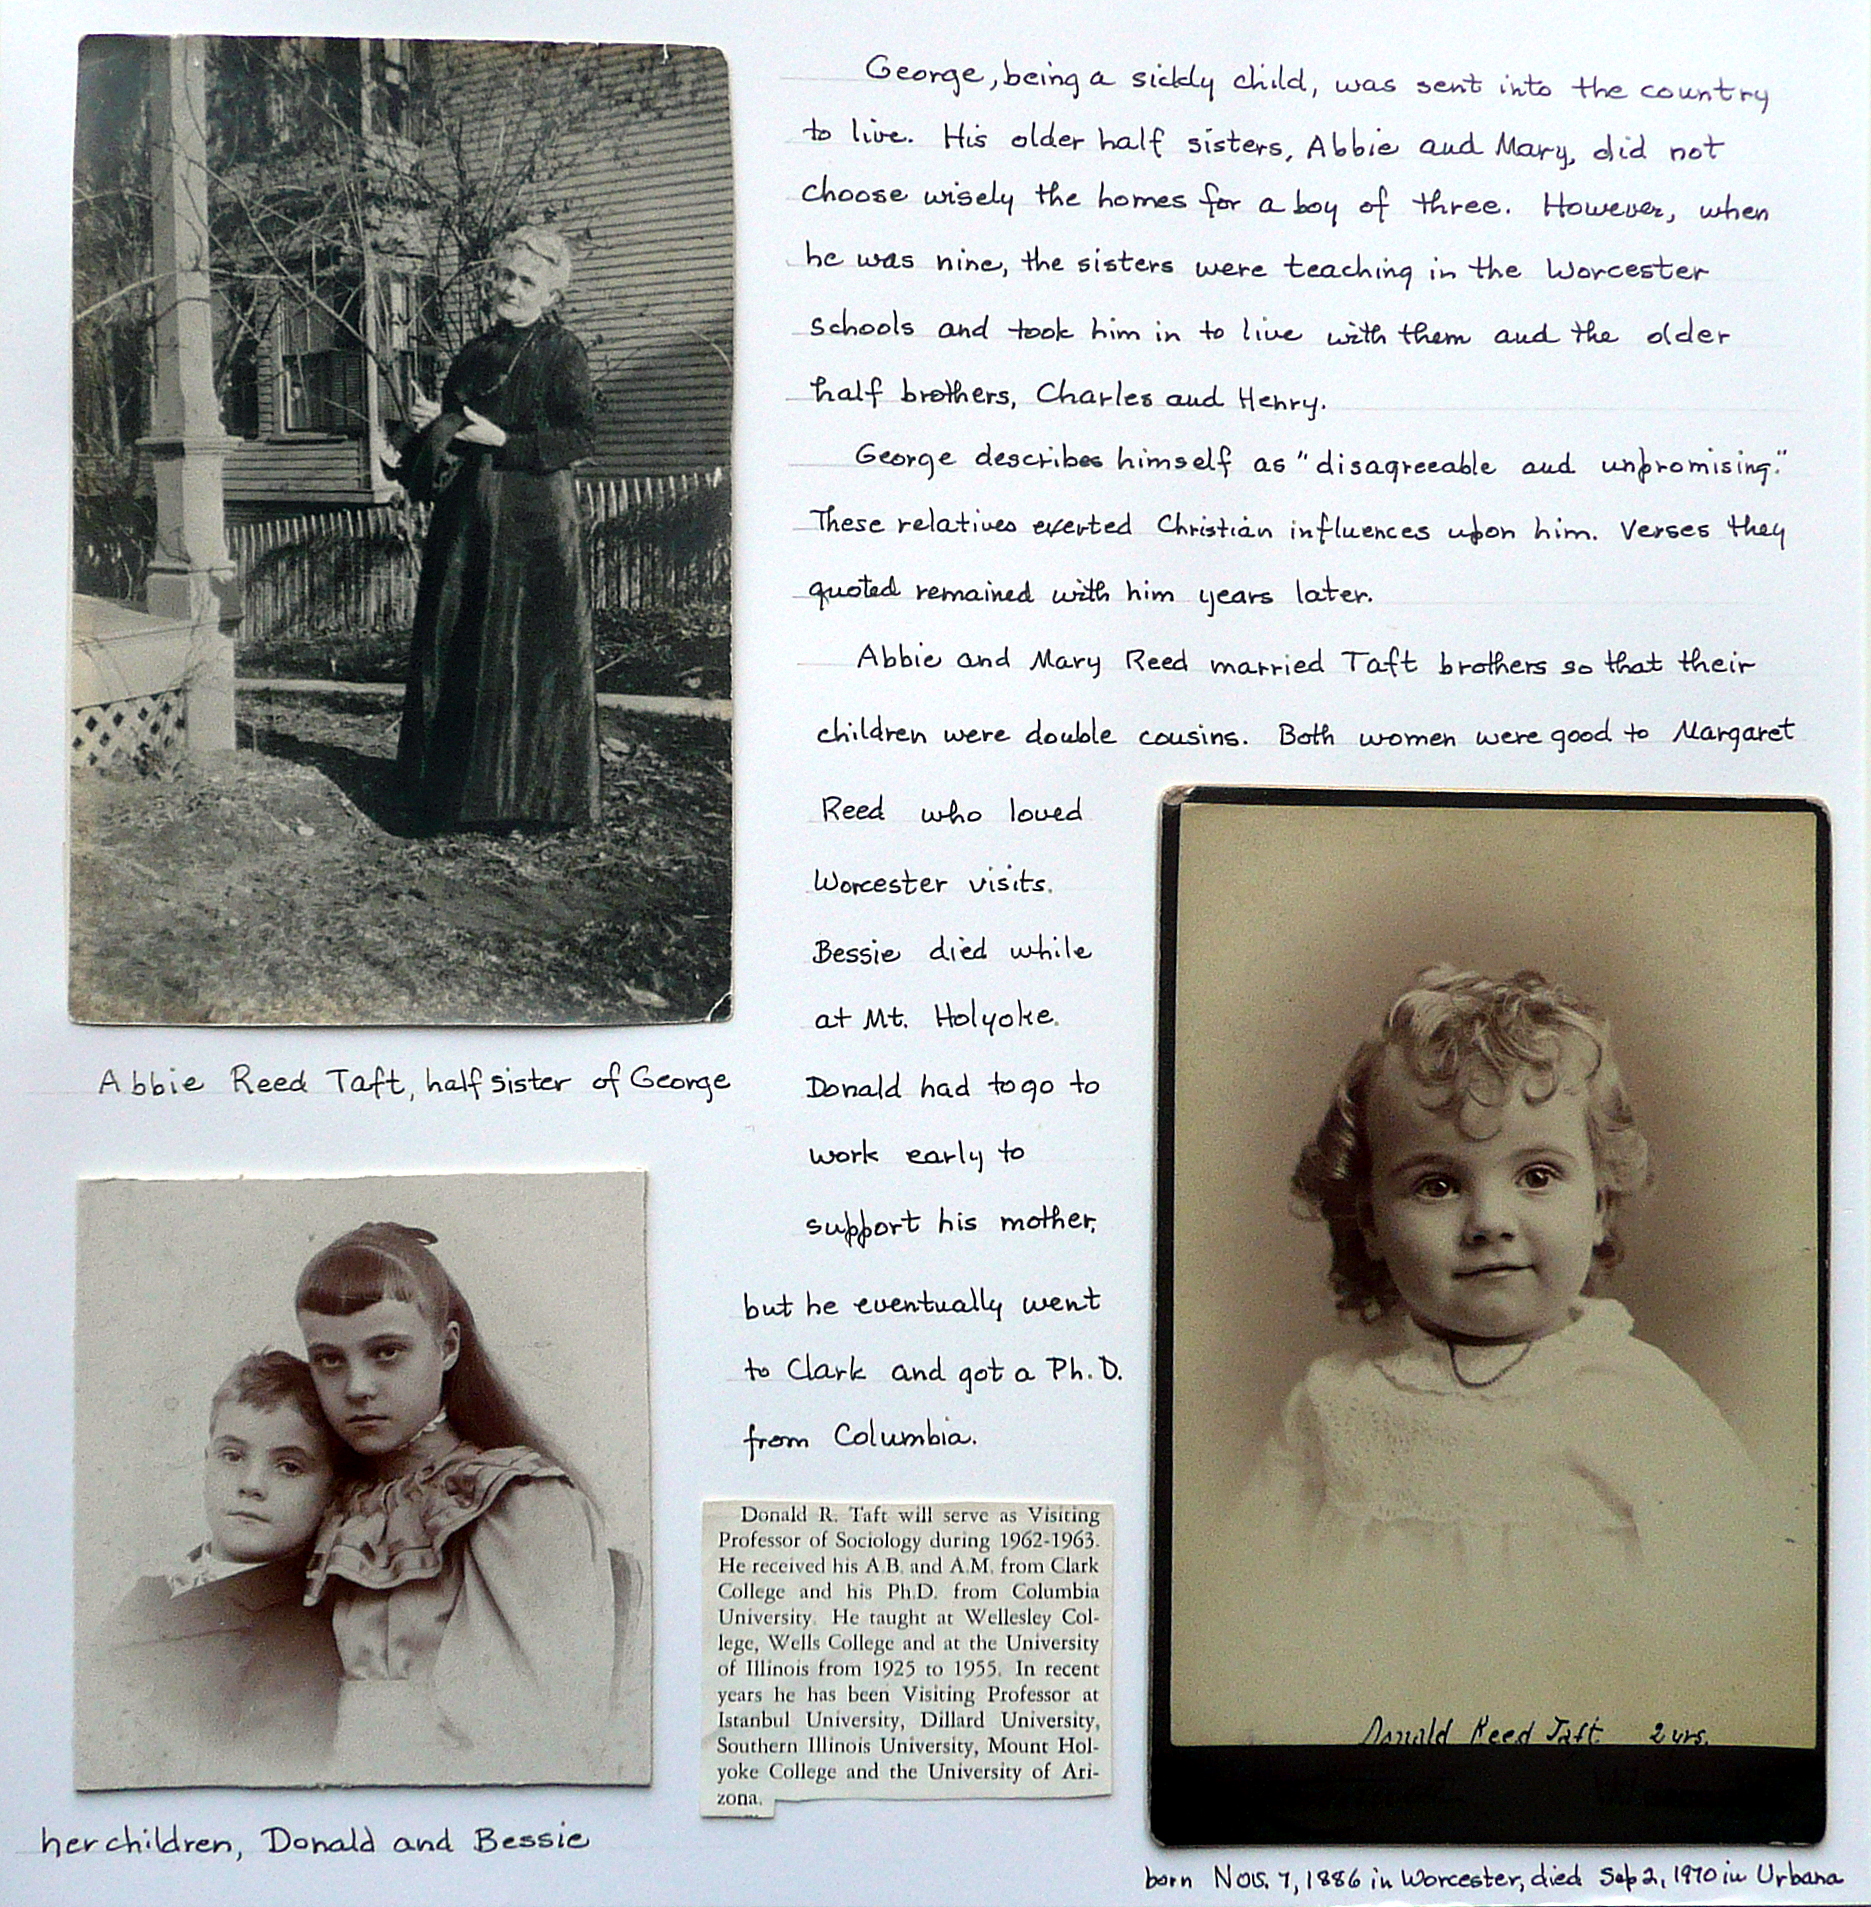 George, being a sickly child, was sent into the country
to live. His older half sisters, Abbie and Mary, did not
choose wisely the homes for a boy of three. However, when
he was nine, the sisters were teaching in the Worcester
schools and took him in to live with them and the older
half brothers, Charles and Henry.
George describes himself as "disagreeable and unpromising."
These relatives exerted Christian influences upon him. Verses they
quoted remained with him years later.
Abbie and Mary Reed married Taft brothers so that their
children were double cousins. Both women were good to Margaret
Reed who loved
Worcester visits.
Bessie died while
at Mt. Holyoke.
Donald had to go to
work early to
support his mother,
but he eventually went
to Clark and got a Ph.D.
from Columbia.
Abbie Reed Taft, half sister of George
her children, Donald and Bessie
Donald R. Taft will serve as Visiting
Professor of Sociology during 1962-1963.
He received his A.B. and A.M. from Clark
College and his Ph.D. from Columbia
University. He taught at Wellesley Col-
lege, Wells College and at the University
of Illinois from 1925 to 1955. In recent
years he has been Visiting Professor at
Istanbul University, Dillard University,
Southern Illinois University, Mount Hol-
yoke College and the University of Ari-
zona.
Donald Reed Taft 2 yrs.
born Nov. 7, 1886 in Worcester, died Sep 2, 1970 in Urbana